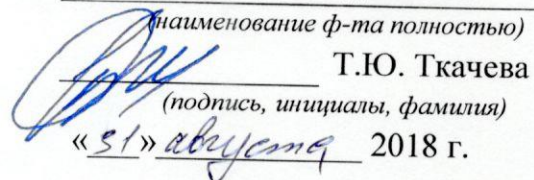 (наименование ф-та полностью)
Т.Ю. Ткачева
(подпись, инициалы, фамилия)
«31» августа 2018 г.